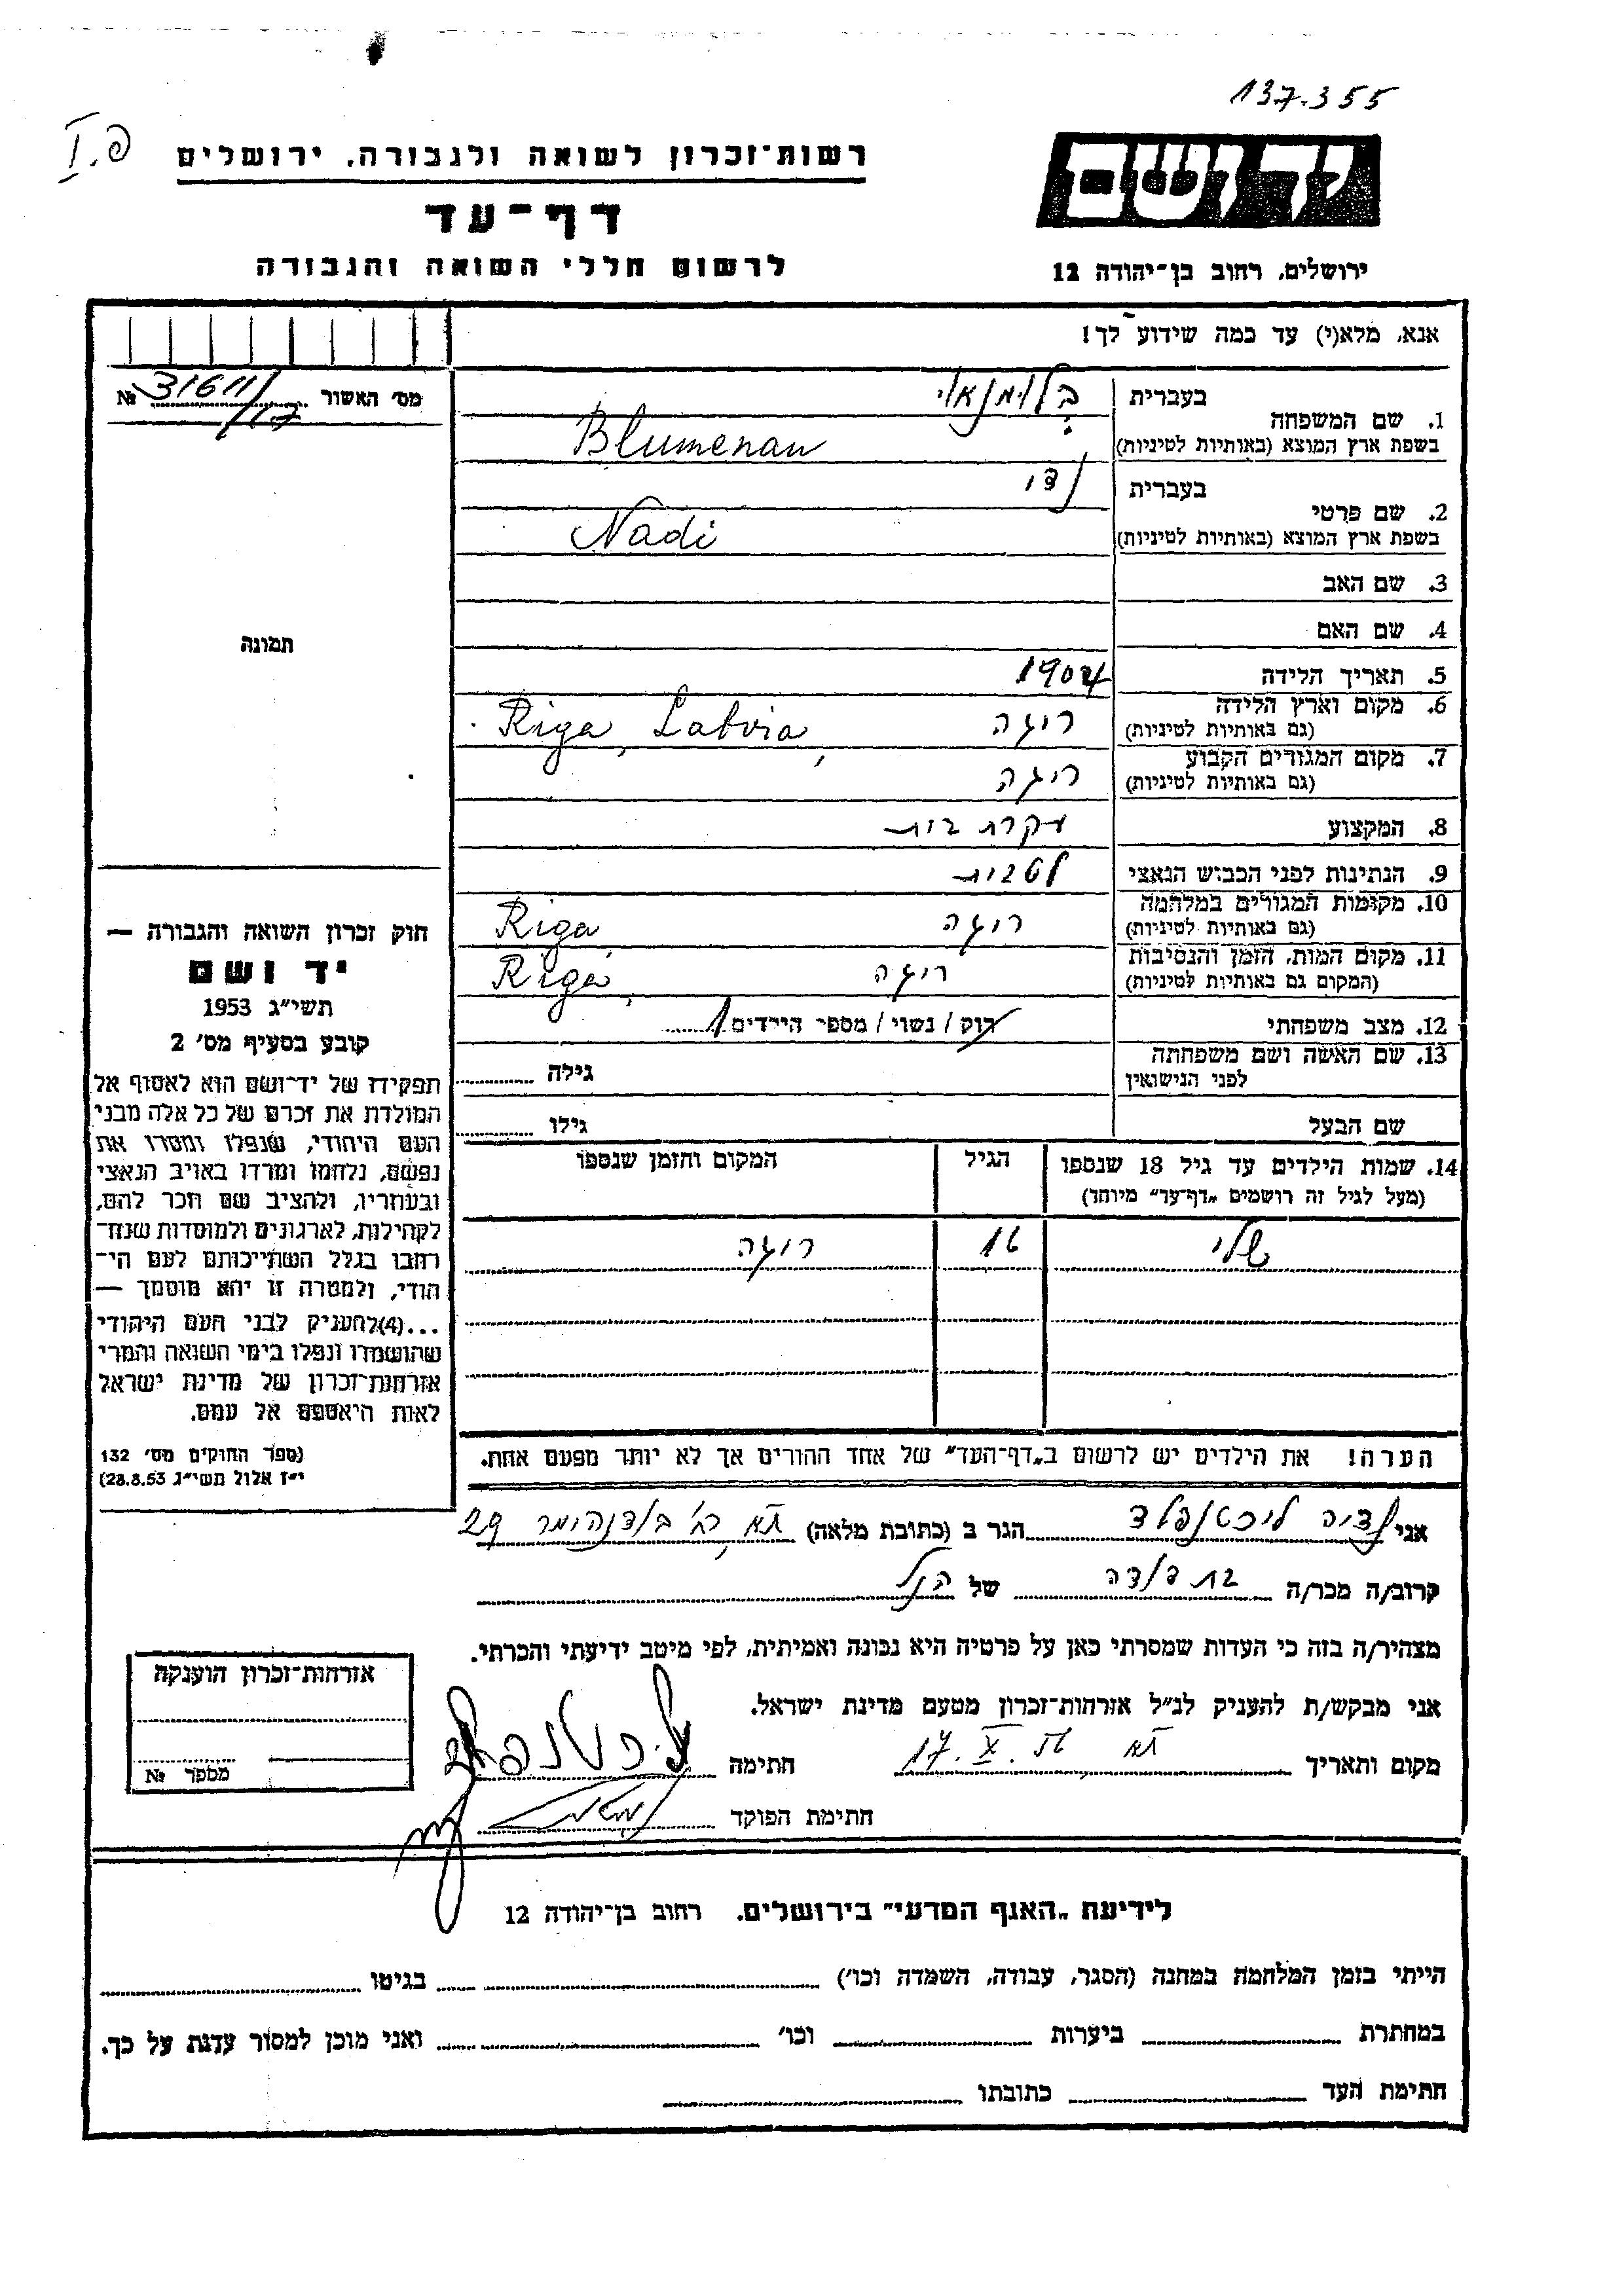 137.355
I.פ
רשות-זכרון לשואה ולגבורה, ירושלים
יד ושם
דף-עד
לרשום חללי השואה והגבורה
ירושלים, רחוב בן-יהודה 12
אנא, מלא(י) עד כמה שידוע לך!
מס' האשור 31611/17 №
תמונה
1. שם המשפחה
בעברית בלומנאוי
בשפת ארץ המוצא (באותיות לטיניות) Blumenau
2. שם פרטי
בעברית נדי
בשפת ארץ המוצא (באותיות לטיניות) Nadi
3. שם האב
4. שם האם
5. תאריך הלידה 1904
6. מקום וארץ הלידה
(גם באותיות לטיניות) ריגה Riga, Latvia,
7. מקום המגורים הקבוע
(גם באותיות לטיניות) ריגה
8. המקצוע עקרת בית
9. הנתינות לפני הכבוש הנאצי לטבית
10. מקומות המגורים במלחמה
(גם באותיות לטיניות) ריגה Riga,
11. מקום המות, הזמן והנסיבות
(המקום גם באותיות לטיניות) ריגה Riga,
12. מצב משפחתי רוק / נשוי / מספר הילדים 1
13. שם האשה ושם משפחתה
לפני הנישואין גילה
שם הבעל גילו
14. שמות הילדים עד גיל 18 שנספו
(מעל לגיל זה רושמים „דף-עד" מיוחד)
הגיל
המקום והזמן שנספו
שלי 16 ריגה
הערה! את הילדים יש לרשום ב„דף-העד" של אחד ההורים אך לא יותר מפעם אחת.
חוק זכרון השואה והגבורה —
יד ושם
תשי"ג 1953
קובע בסעיף מס' 2
תפקידו של יד-ושם הוא לאסוף אל
המולדת את זכרם של כל אלה מבני
העם היהודי, שנפלו ומסרו את
נפשם, נלחמו ומרדו באויב הנאצי
ובעוזריו, ולהציב שם וזכר להם,
לקהילות, לארגונים ולמוסדות שנח-
רחבו בגלל השתייכותם לעם הי-
הודי, ולמטרה זו יהא מוסמך —
...(4)להעניק לבני העם היהודי
שהושמדו ונפלו בימי השואה והמרי
אזרחות-זכרון של מדינת ישראל
לאות היאספם אל עמם.
(ספר החוקים מס' 132
י"ז אלול תשי"ג 28.8.53)
אני נדיה ליכטנפלד הגר ב (כתובת מלאה) תא רח' 29
קרוב/ה מכר/ה בת דודה של הנ"ל
מצהיר/ה בזה כי העדות שמסרתי כאן על פרטיה היא נכונה ואמיתית, לפי מיטב ידיעתי והכרתי.
אני מבקש/ת להעניק לנ"ל אזרחות-זכרון מטעם מדינת ישראל.
מקום ותאריך תא 17.X. חתימה ליכטנפלד
חתימת הפוקד
אזרחות-זכרון הוענקה
מספר №
לידיעת „האגף המדעי" בירושלים. רחוב בן-יהודה 12
הייתי בזמן המלחמה במחנה (הסגר, עבודה, השמדה וכו') בגיטו
במחתרת ביערות וכו' ואני מוכן למסור עדות על כך.
חתימת העד כתובתו